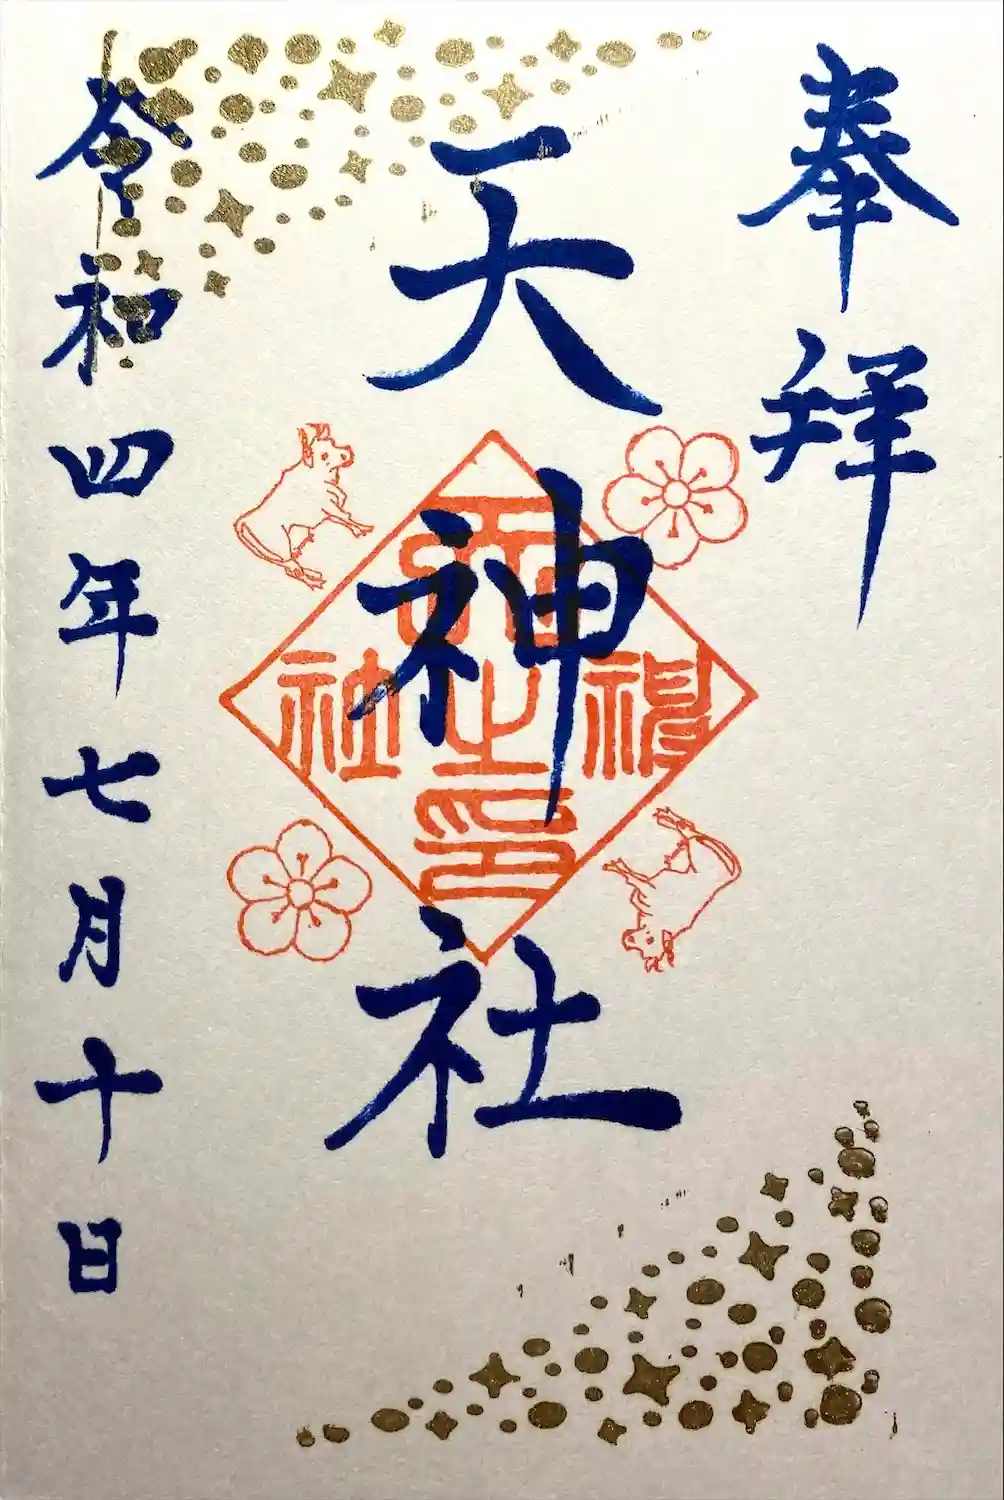 奉拝
天神社
天神社之印
令和四年七月十日